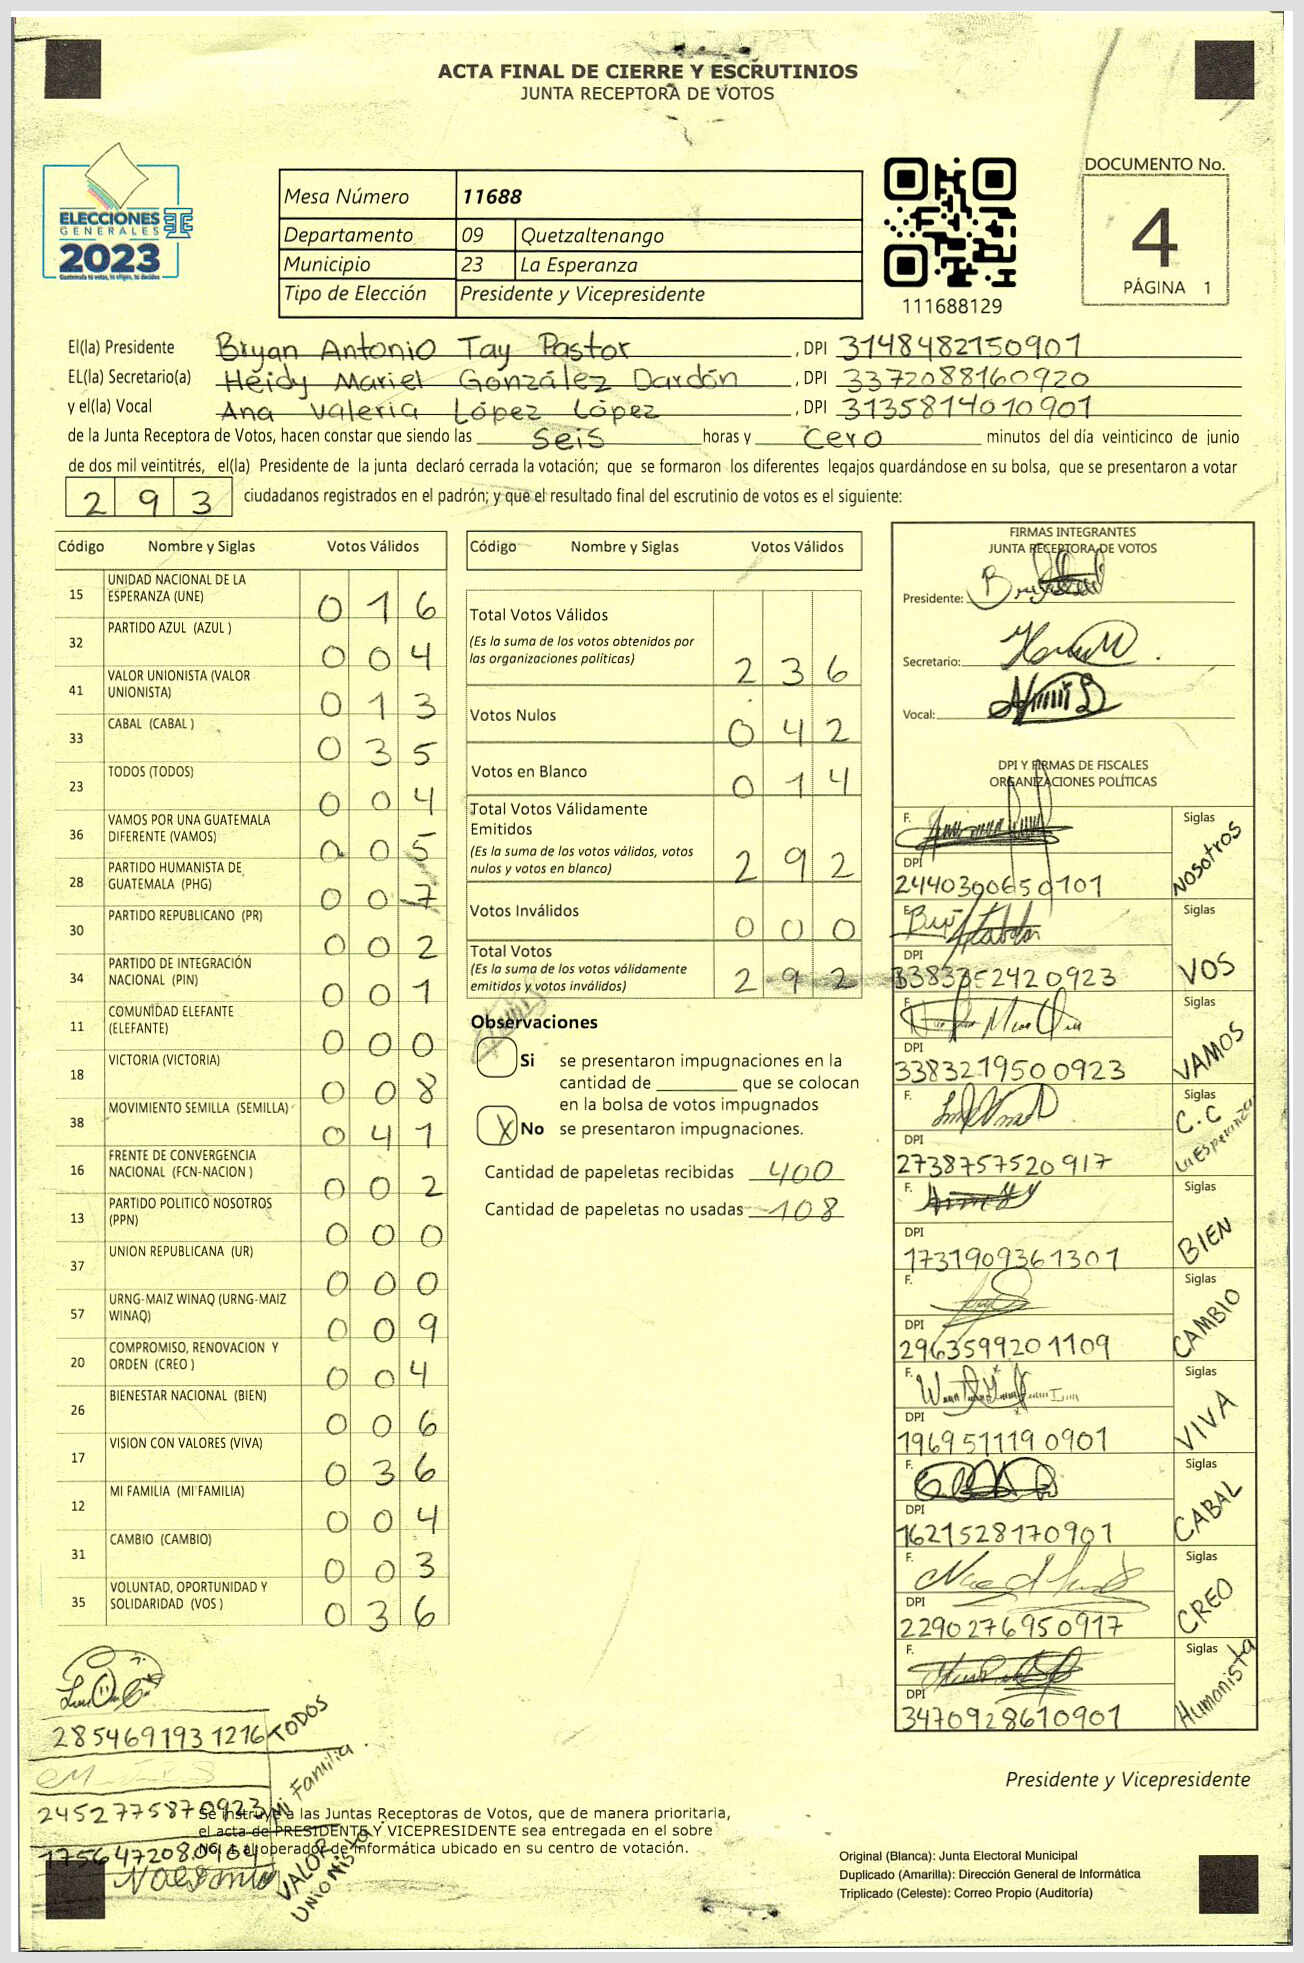 ACTA FINAL DE CIERRE Y ESCRUTINIOS
JUNTA RECEPTORA DE VOTOS
ELECCIONES
GENERALES
2023
Mesa Número 11688
Departamento 09 Quetzaltenango
Municipio 23 La Esperanza
Tipo de Elección Presidente y Vicepresidente
111688129
DOCUMENTO No.
4
PÁGINA 1
El(la) Presidente Bryan Antonio Tay Pastor, DPI 3148482150901
EL(la) Secretario(a) Heidy Mariel González Dardón, DPI 3372088160920
y el(la) Vocal Ana Valeria López López, DPI 3135814010901
de la Junta Receptora de Votos, hacen constar que siendo las seis horas y cero minutos del día veinticinco de junio
de dos mil veintitrés, el(la) Presidente de la junta declaró cerrada la votación; que se formaron los diferentes legajos guardándose en su bolsa, que se presentaron a votar
293 ciudadanos registrados en el padrón; y que el resultado final del escrutinio de votos es el siguiente:
Código Nombre y Siglas Votos Válidos
15 UNIDAD NACIONAL DE LA ESPERANZA (UNE) 016
32 PARTIDO AZUL (AZUL ) 004
41 VALOR UNIONISTA (VALOR UNIONISTA) 013
33 CABAL (CABAL ) 035
23 TODOS (TODOS) 004
36 VAMOS POR UNA GUATEMALA DIFERENTE (VAMOS) 005
28 PARTIDO HUMANISTA DE GUATEMALA (PHG) 007
30 PARTIDO REPUBLICANO (PR) 002
34 PARTIDO DE INTEGRACIÓN NACIONAL (PIN) 001
11 COMUNIDAD ELEFANTE (ELEFANTE) 000
18 VICTORIA (VICTORIA) 008
38 MOVIMIENTO SEMILLA (SEMILLA) 041
16 FRENTE DE CONVERGENCIA NACIONAL (FCN-NACION ) 002
13 PARTIDO POLITICO NOSOTROS (PPN) 000
37 UNION REPUBLICANA (UR) 000
57 URNG-MAIZ WINAQ (URNG-MAIZ WINAQ) 009
20 COMPROMISO, RENOVACION Y ORDEN (CREO ) 004
26 BIENESTAR NACIONAL (BIEN) 006
17 VISION CON VALORES (VIVA) 036
12 MI FAMILIA (MI FAMILIA) 004
31 CAMBIO (CAMBIO) 003
35 VOLUNTAD, OPORTUNIDAD Y SOLIDARIDAD (VOS ) 036
Código Nombre y Siglas Votos Válidos
Total Votos Válidos
(Es la suma de los votos obtenidos por las organizaciones políticas) 236
Votos Nulos 042
Votos en Blanco 014
Total Votos Válidamente Emitidos
(Es la suma de los votos válidos, votos nulos y votos en blanco) 292
Votos Inválidos 000
Total Votos
(Es la suma de los votos válidamente emitidos y votos inválidos) 292
Observaciones
Si se presentaron impugnaciones en la
cantidad de ________ que se colocan
en la bolsa de votos impugnados
X No se presentaron impugnaciones.
Cantidad de papeletas recibidas 400
Cantidad de papeletas no usadas 108
FIRMAS INTEGRANTES
JUNTA RECEPTORA DE VOTOS
Presidente:
Secretario:
Vocal:
DPI Y FIRMAS DE FISCALES
ORGANIZACIONES POLÍTICAS
F. Siglas
DPI 2440300650101 NOSOTROS
F. Siglas
DPI 3383352420923 VOS
F. Siglas
DPI 3383219500923 VAMOS
F. Siglas
DPI 2738757520917 C.C La Esperanza
F. Siglas
DPI 1731909361301 BIEN
F. Siglas
DPI 2963599201109 CAMBIO
F. Siglas
DPI 1969511190901 VIVA
F. Siglas
DPI 1621528170901 CABAL
F. Siglas
DPI 2290276950917 CREO
F. Siglas
DPI 3470928610901 Humanista
2854691931216 TODOS
2452775870923 Mi Familia
VALOR UNIONISTA
Presidente y Vicepresidente
Se instruye a las Juntas Receptoras de Votos, que de manera prioritaria,
el acta de PRESIDENTE Y VICEPRESIDENTE sea entregada en el sobre
al operador de informática ubicado en su centro de votación.
Original (Blanca): Junta Electoral Municipal
Duplicado (Amarilla): Dirección General de Informática
Triplicado (Celeste): Correo Propio (Auditoría)